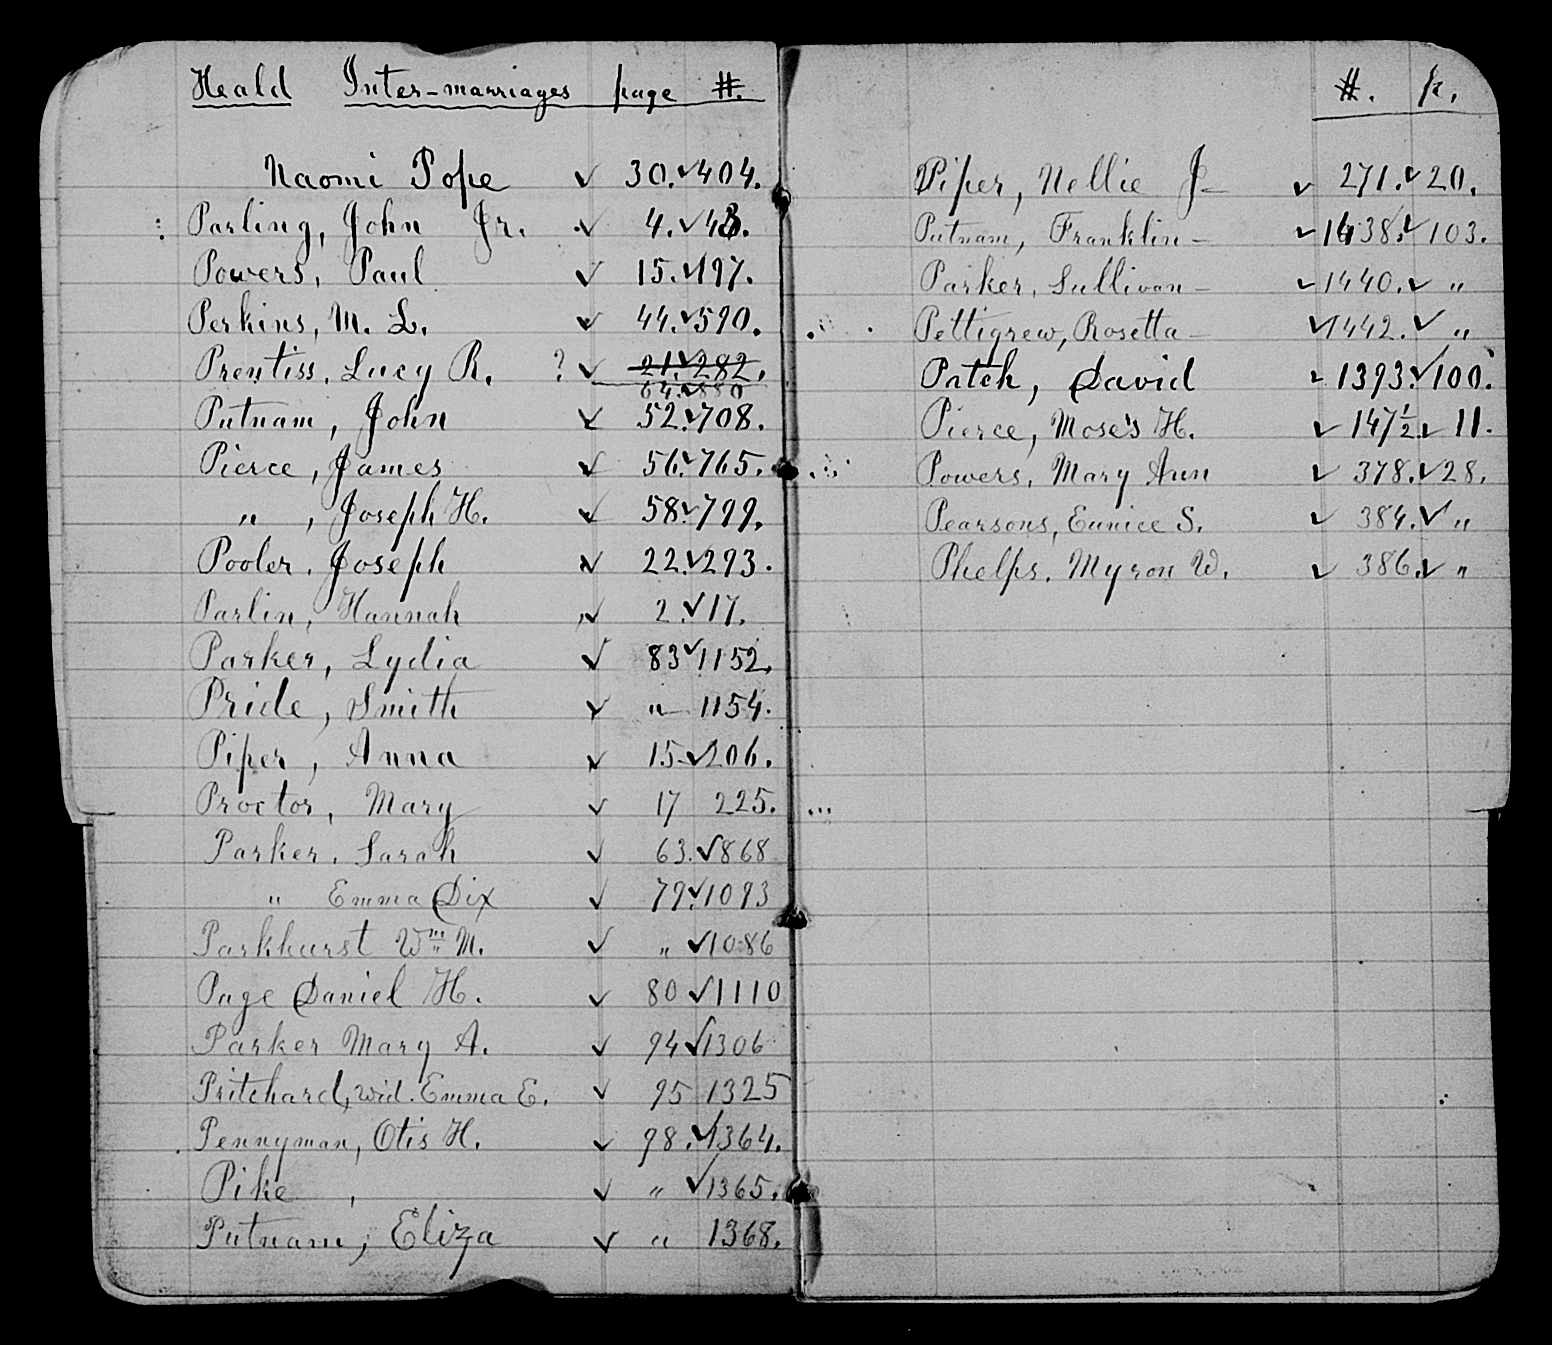 Heald Inter-marriages page #.
Naomi Pope ✓ 30. ✓ 404.
Parling, John Jr. ✓ 4. ✓ 43.
Powers, Paul ✓ 15. ✓ 197.
Perkins, M. L. ✓ 44. ✓ 590.
Prentiss, Lucy R. ? ✓ 21. ✓ 282.
64. ✓ 880
Putnam, John ✓ 52. ✓ 708.
Pierce, James ✓ 56. ✓ 765.
" , Joseph H. ✓ 58. ✓ 799.
Pooler, Joseph ✓ 22. ✓ 293.
Parlin, Hannah ✓ 2. ✓ 17.
Parker, Lydia ✓ 83 ✓ 1152.
Pride, Smith ✓ " 1154.
Piper, Anna ✓ 15 ✓ 206.
Proctor, Mary ✓ 17 225.
Parker, Sarah ✓ 63. ✓ 868
" Emma Dix ✓ 79. ✓ 1093
Parkhurst Wm M. ✓ " ✓ 1086
Page Daniel H. ✓ 80 ✓ 1110
Parker Mary A. ✓ 94 ✓ 1306
Pritchard, wid. Emma E. ✓ 95 1325
Pennyman, Otis H. ✓ 98. ✓ 1364.
Pike , ✓ " ✓ 1365.
Putnam, Eliza ✓ " 1368.
#. p.
Piper, Nellie J- ✓ 271. ✓ 20.
Putnam, Franklin- ✓ 1438. ✓ 103.
Parker, Sullivan- ✓ 1440. ✓ "
Pettigrew, Rosetta- ✓ 1442. ✓ "
Patch, David ✓ 1393. ✓ 100.
Pierce, Moses H. ✓ 147½ ✓ 11.
Powers, Mary Ann ✓ 378. ✓ 28.
Pearsons, Eunice S. ✓ 384. ✓ "
Phelps, Myron W. ✓ 386. ✓ "